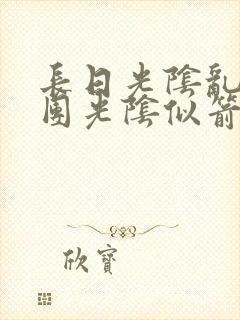 長日光陰亂
團光陰似箭
欣寶